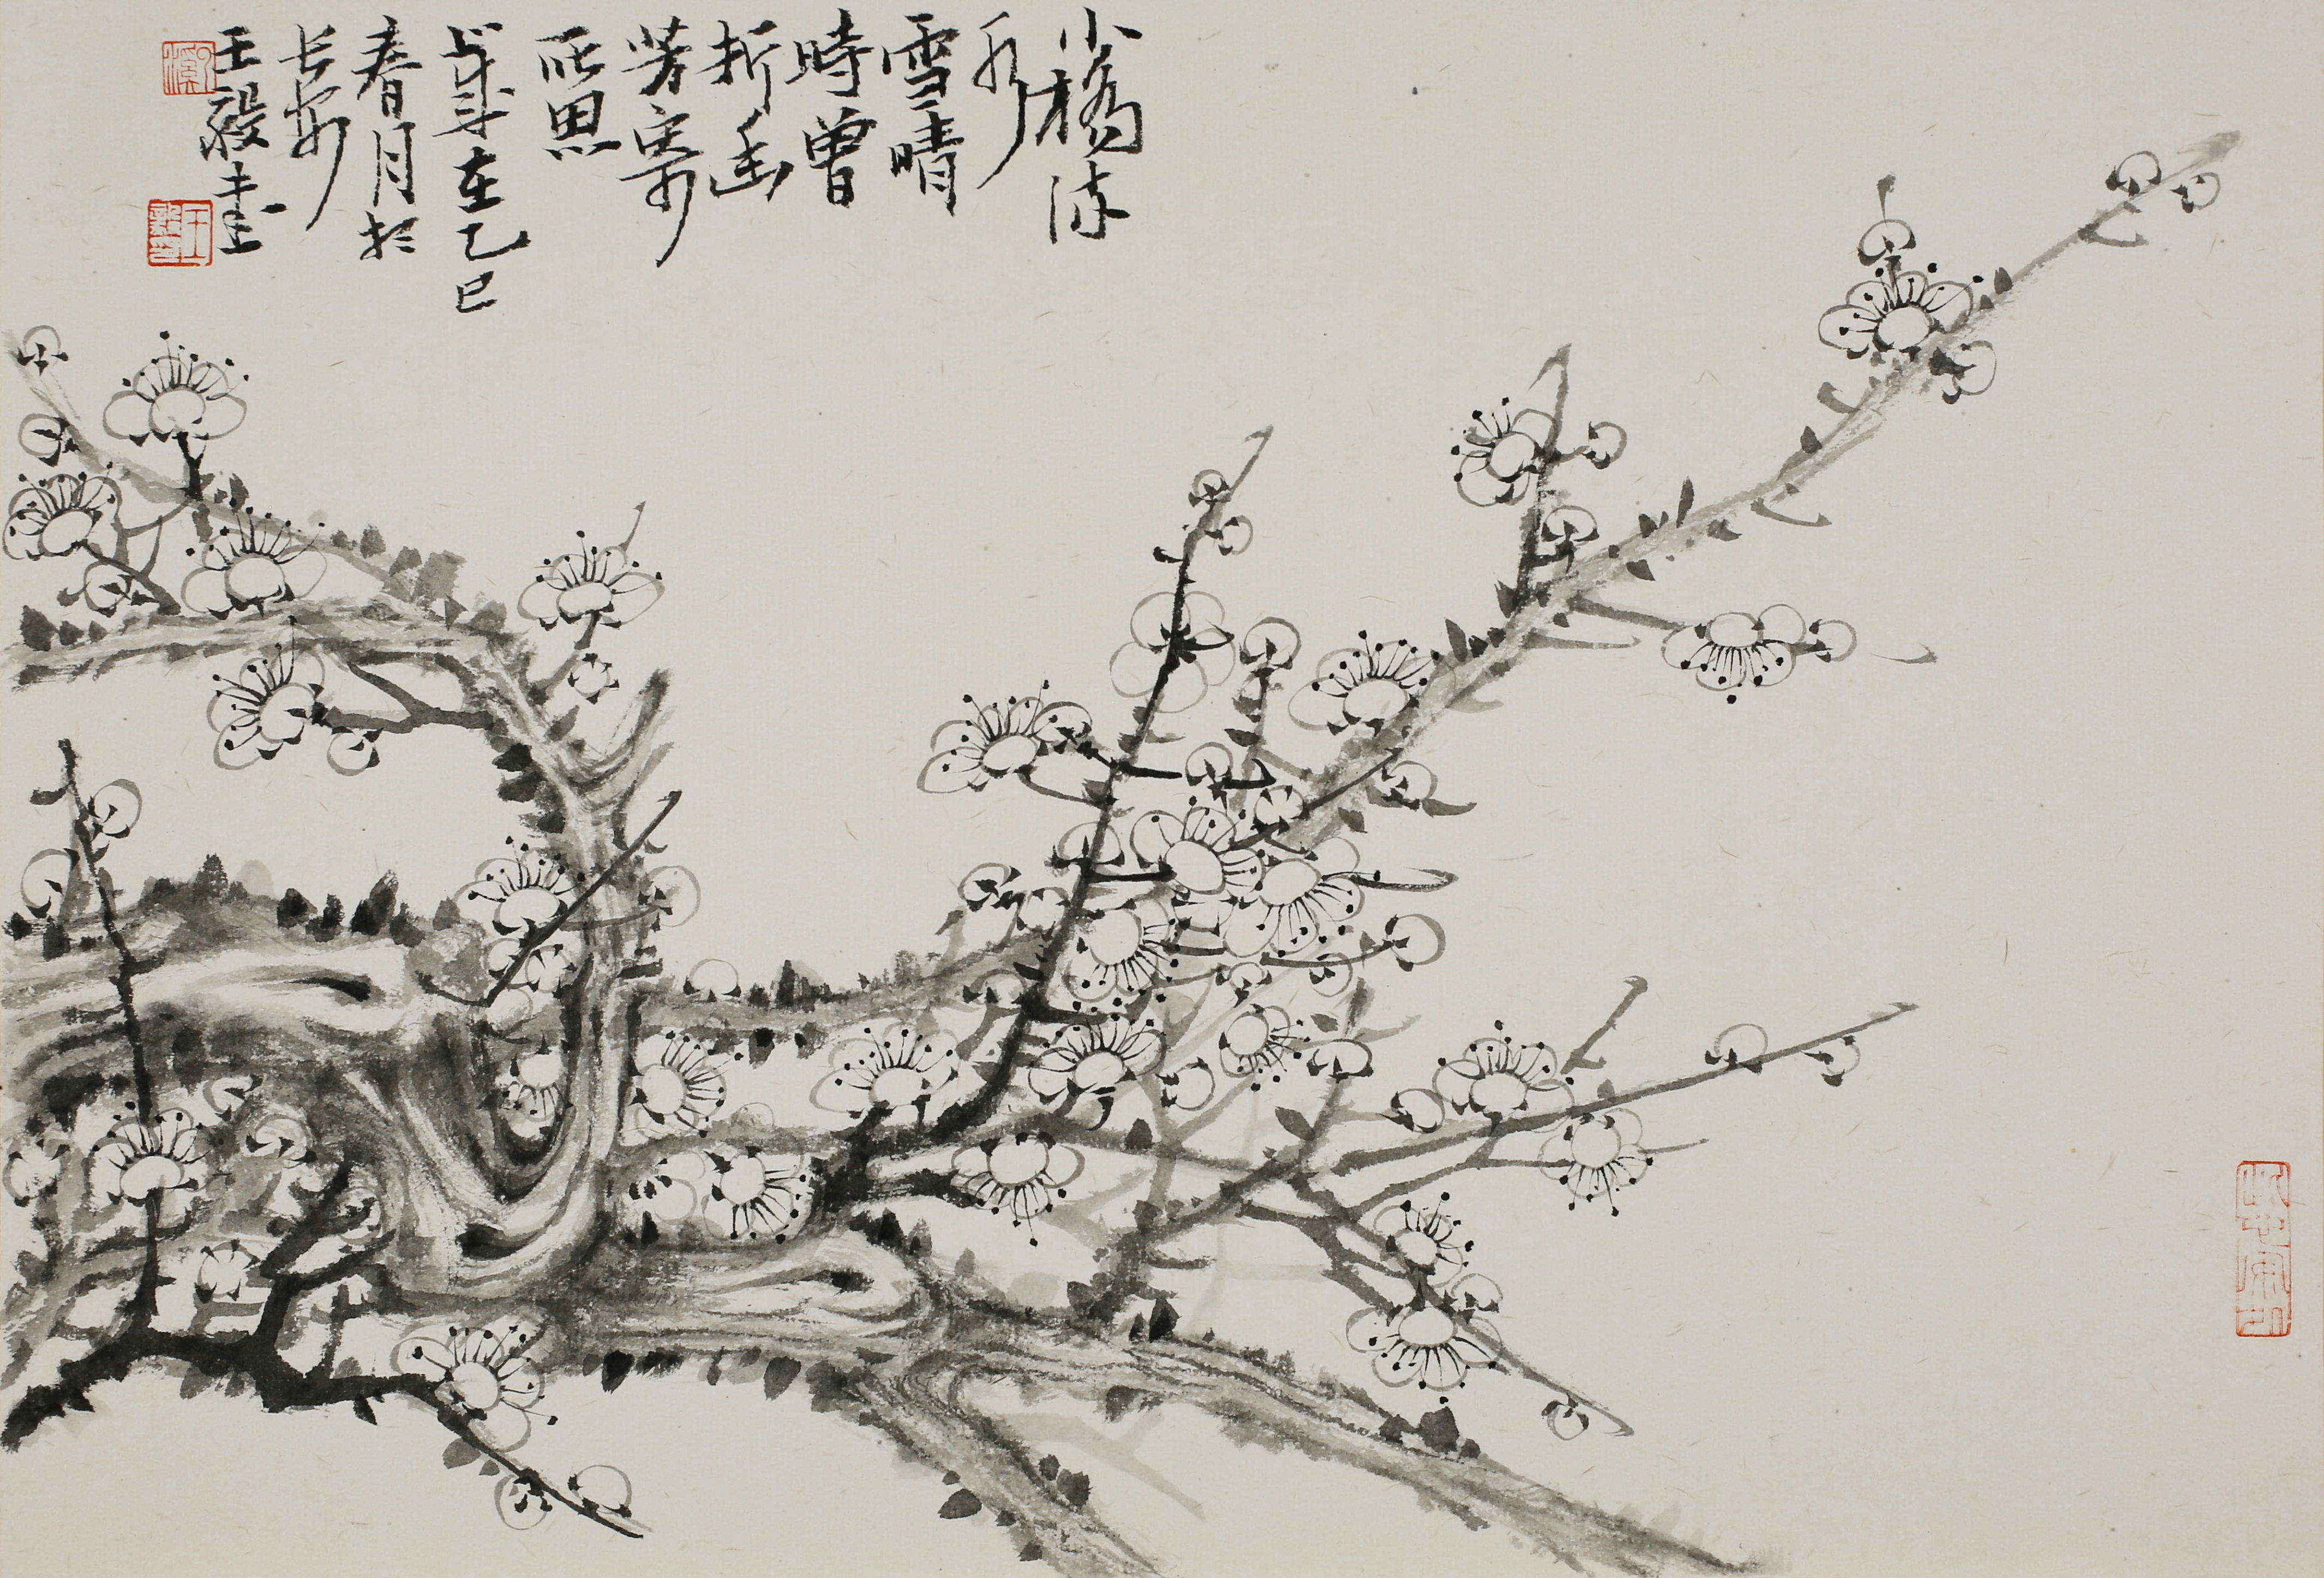 小橋流
水
雪晴
時曾
折函
芳寄
所思
歲在乙巳
春月於
長安
王毅畫